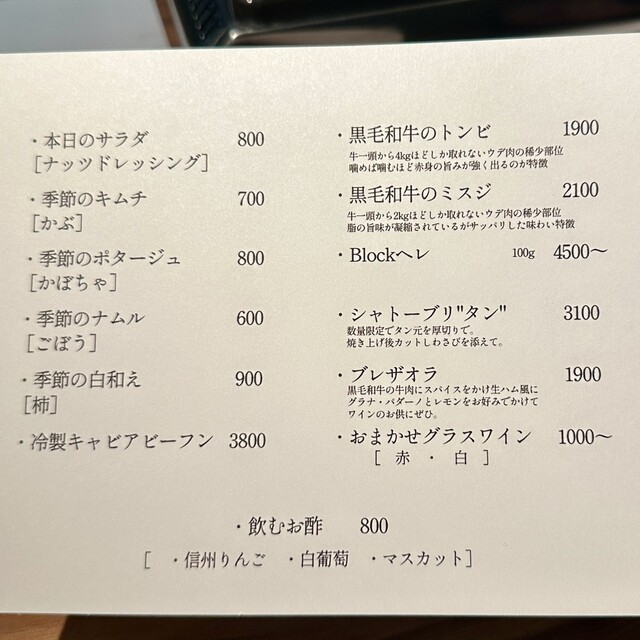 ・本日のサラダ 800
［ナッツドレッシング］
・季節のキムチ 700
［かぶ］
・季節のポタージュ 800
［かぼちゃ］
・季節のナムル 600
［ごぼう］
・季節の白和え 900
［柿］
・冷製キャビアビーフン 3800
・黒毛和牛のトンビ 1900
牛一頭から4kgほどしか取れないウデ肉の稀少部位
噛めば噛むほど赤身の旨みが強く出るのが特徴
・黒毛和牛のミスジ 2100
牛一頭から2kgほどしか取れないウデ肉の稀少部位
脂の旨味が凝縮されているがサッパリした味わい特徴
・Blockヘレ 100g 4500〜
・シャトーブリ"タン" 3100
数量限定でタン元を厚切りで。
焼き上げ後カットしわさびを添えて。
・ブレザオラ 1900
黒毛和牛の牛肉にスパイスをかけ生ハム風に
グラナ・パダーノとレモンをお好みでかけて
ワインのお供にぜひ。
・おまかせグラスワイン 1000〜
［ 赤 ・ 白 ］
・飲むお酢 800
［ ・信州りんご ・白葡萄 ・マスカット］